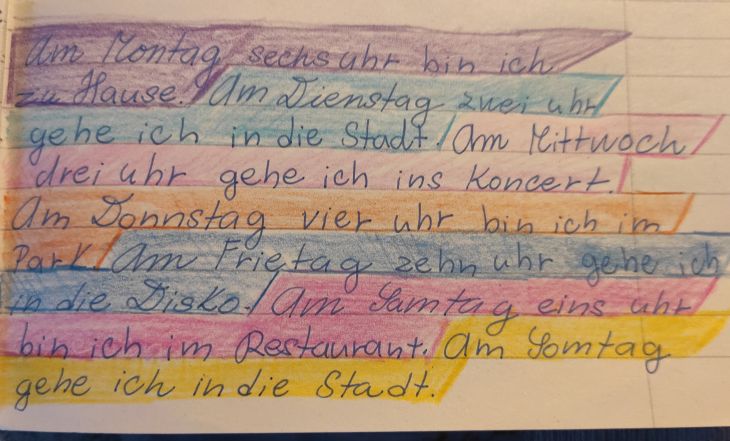 Am Montag sechs uhr bin ich
zu Hause. Am Dienstag zwei uhr
gehe ich in die Stadt. Am Mittwoch
drei uhr gehe ich ins Koncert.
Am Donnstag vier uhr bin ich im
Park. Am Frietag zehn uhr gehe ich
in die Disko. Am Samtag eins uhr
bin ich im Restaurant. Am Somtag
gehe ich in die Stadt.